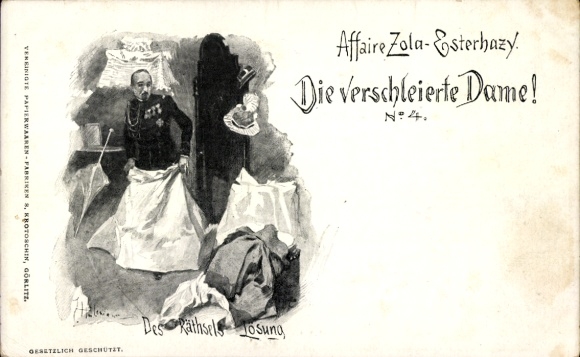 Affaire Zola-Esterhazy.
Die verschleierte Dame!
No 4.
VEREINIGTE PAPIERWAAREN-FABRIKEN S. KROTOSCHIN, GÖRLITZ.
Des Räthsels Lösung
GESETZLICH GESCHÜTZT.